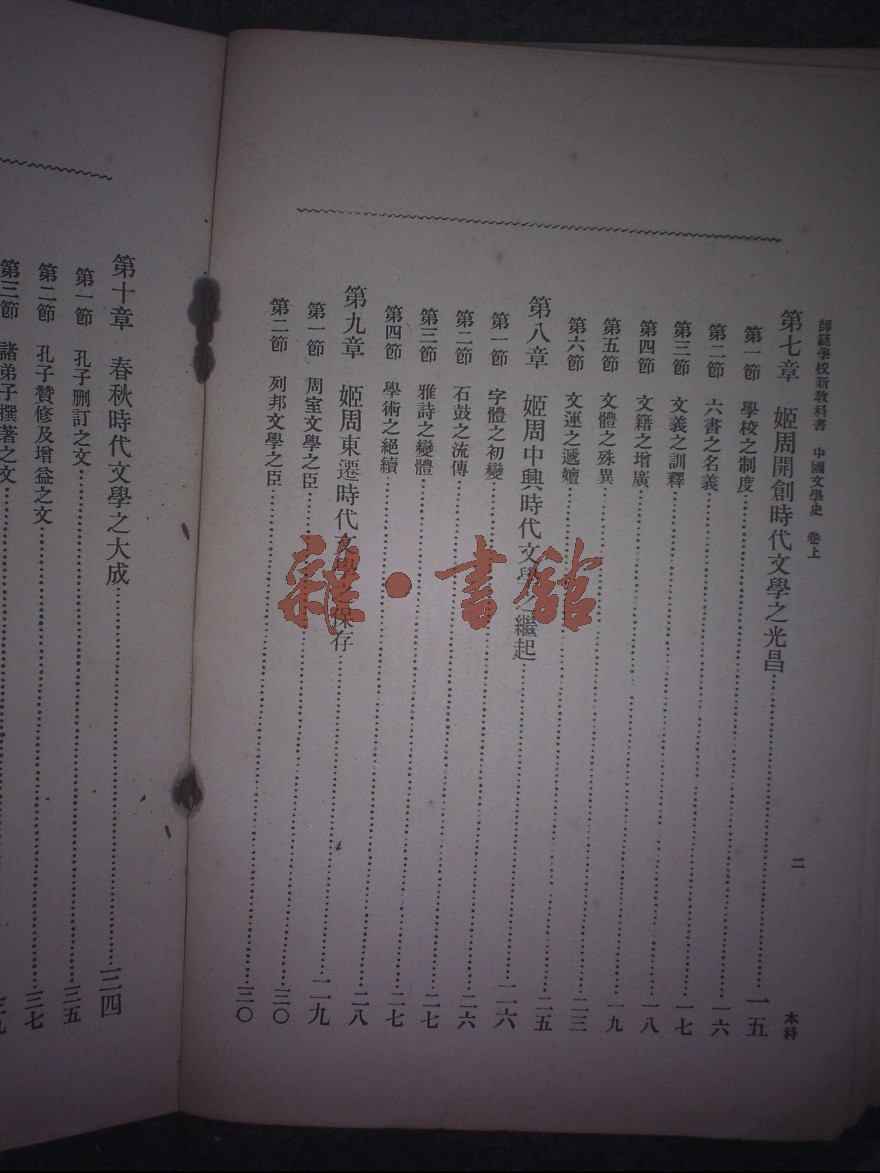 師範學校新教科書 中國文學史 卷上 二 本科
第七章 姬周開創時代文學之光昌……一五
第一節 學校之制度……一六
第二節 六書之名義……一七
第三節 文義之訓釋……一八
第四節 文籍之增廣……一九
第五節 文體之殊異……二三
第六節 文運之遞嬗……二五
第八章 姬周中興時代文學之繼起……二六
第一節 字體之初變……二六
第二節 石鼓之流傳……二七
第三節 雅詩之變體……二七
第四節 學術之絕續……二八
第九章 姬周東遷時代文學之保存……二九
第一節 周室文學之臣……三〇
第二節 列邦文學之臣……三〇
第十章 春秋時代文學之大成……三四
第一節 孔子刪訂之文……三五
第二節 孔子贊修及增益之文……三七
第三節 諸弟子撰著之文……
雜·書館